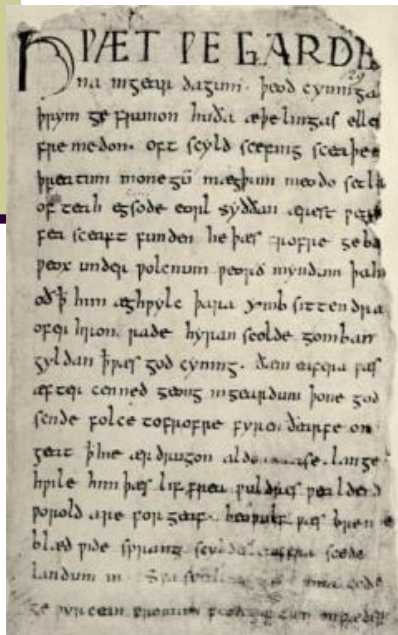 HǷÆT ǷE GARDE
na ingear dagum. þeod cyninga
þrym ge frunon huða æþelingas elle
fre medon. oft scyld scefing sceaþe
þreatum monegū mægþum meodo setla
of teah egsode eorl syððan ærest
fea sceaft funden he þæs frofre geba
ƿeox under ƿolcnum ƿeorð myndum þah
oð ꝥ him æghƿylc þara ymb sittendra
ofer hron rade hyran scolde gomban
gyldan ꝥ ƿæs god cyning. ðæm eafera ƿæs
æfter cenned geong in geardum þone god
sende folce tofrofre fyren ðearfe on
geat ꝥ hie ær drugon lange
hƿile him þæs lif frea ƿuldres ƿealdend
ƿorold are for geaf. beoƿulf ƿæs breme
blæd ƿide sprang scyldes eafera scede
landum in. Sƿa
ge ƿyrcean fromum